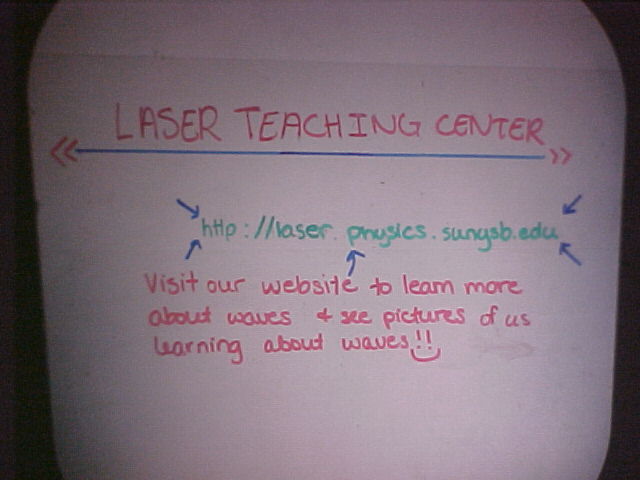 LASER TEACHING CENTER
http://laser.physics.sunysb.edu
Visit our website to learn more
about waves + see pictures of us
learning about waves!!